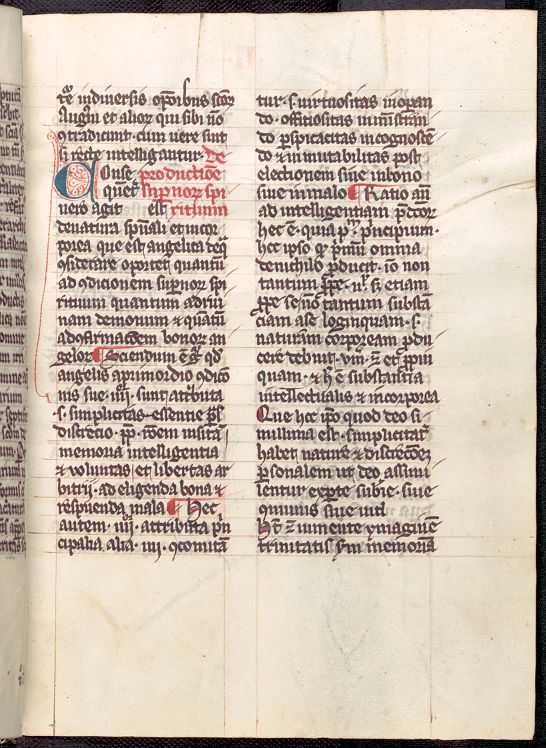 tur in diversis operibus sanctorum
Augustini et aliorum qui sibi non
contradicunt cum vere sint
si recte intelligantur. De
Conse productione
quenter supernorum spi
vero agit est rituum
de natura spirituali et incor
porea que est angelica de qua
considerare oportet quantum
ad conditionem supernorum spi
rituum quantum ad rui
nam demonum et quantum
ad confirmacionem bonorum an
gelorum ¶ Sciendum est ergo quod
angelis a primordio condicio
nis sue .iiii. sunt attributa
.s. simplicitas essentie personalis
discrecio propter rationem insitam
memoria intelligentia
et voluntas et libertas ar
bitrii ad eligenda bona et
respuenda mala ¶ Hec
autem .iiii. attributa prin
cipalia alia .iiii. concomitan
tur .s. virtuositas in operan
do. offitiositas in ministran
do perspicacitas in cognoscen
do et inmutabilitas post
electionem sive in bono
sive in malo ¶ Ratio autem
ad intelligentiam predictorum
hec est. quia primum principium.
hec ipso quod primum omnia
de nichilo producit. ideo non
tantum prope nichil set etiam
prope se non tantum substan
ciam a se longinquam .s.
naturam corpoream produ
cere debuit. verum etiam propin
quam. et hec est substantia
intellectualis et incorporea
Que hec ipso quod deo si
millima est. simplicitatem
habet nature et discrecionem
personalem ut deo assimi
lentur ex parte substantie. sive
communis sive individue
Habet etiam in mente ymaginem
trinitatis secundum memoriam